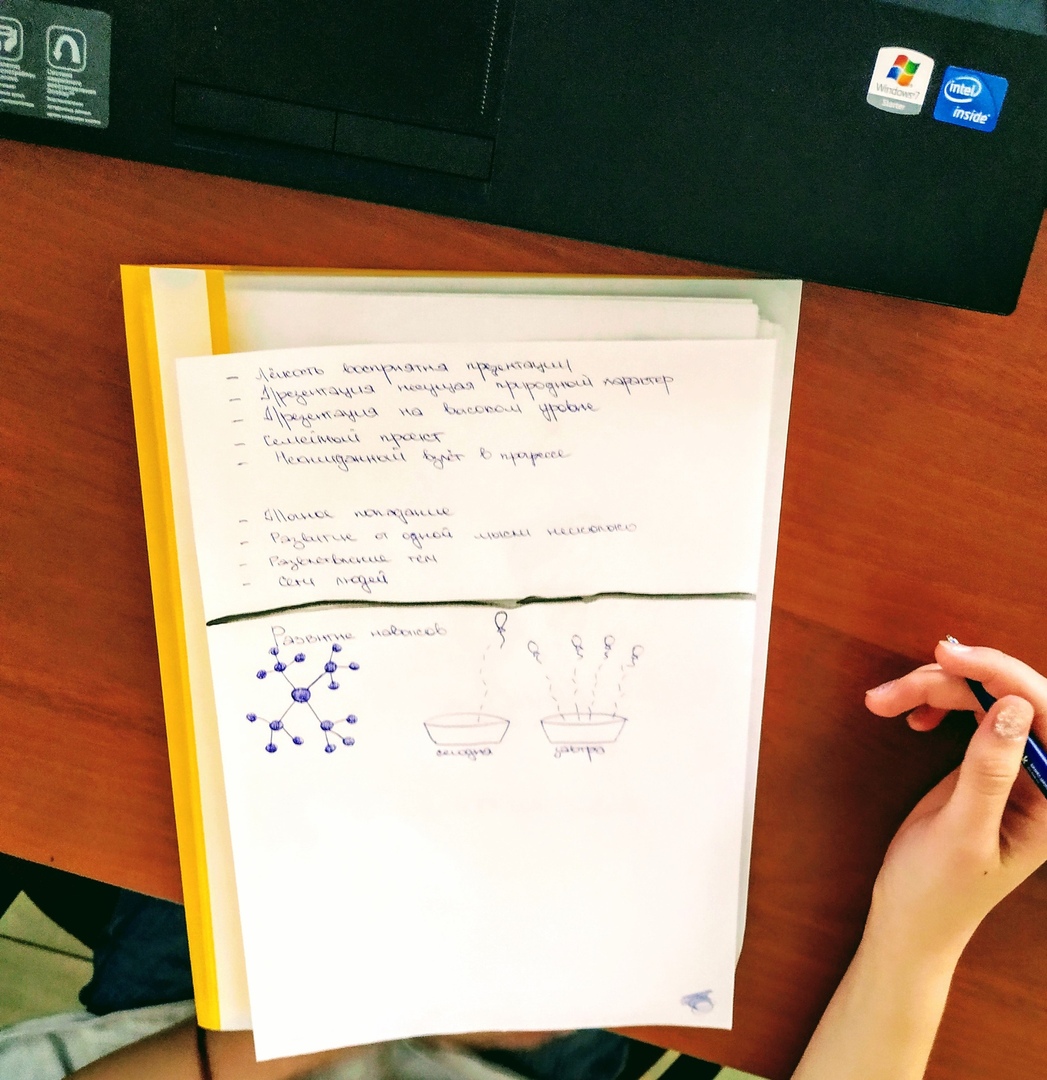 Windows 7
Starter
intel
inside
- Лёгкость восприятия презентации
- Презентация несущая природный характер
- Презентация на высоком уровне
- Семейный проект
- Неожиданный взлёт в прогрессе
- попадание
- Развитие от одной мысли несколько
- Разветвление тем
- Сети людей
Развитие навыков
сегодня
завтра